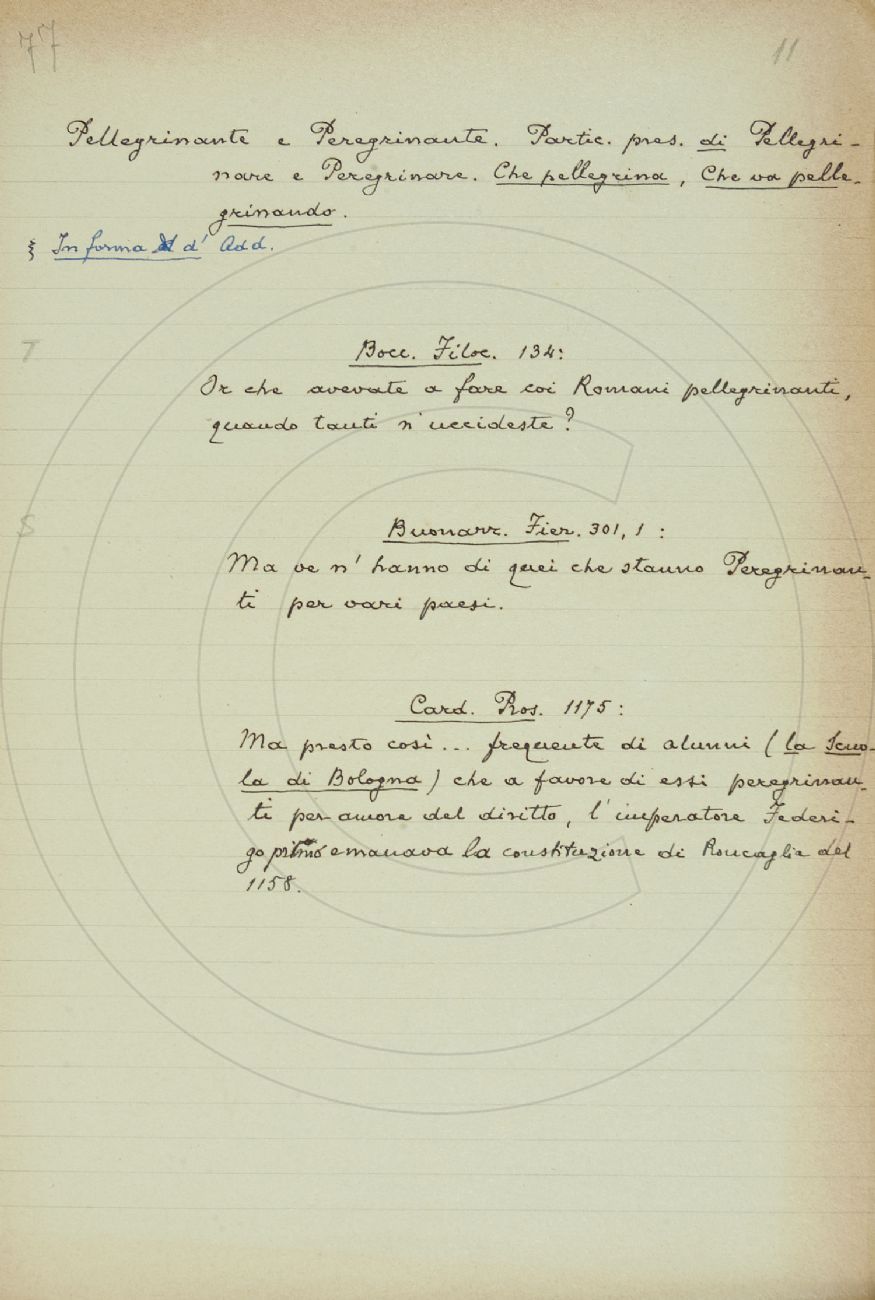 77 11
Pellegrinante e Peregrinante. Partic. pres. di Pellegri-
nare e Peregrinare. Che pellegrina, Che va pelle-
grinando.
§ In forma d' Add.
T
Bocc. Filoc. 134:
Or che avevate a fare coi Romani pellegrinanti,
quando tanti n'uccideste?
S
Buonarr. Fier. 301, 1 :
Ma ve n' hanno di quei che stanno Peregrinan-
ti per vari paesi.
Card. Ros. 1175 :
Ma presto così... frequente di alunni (la Scuo-
la di Bologna) che a favore di essi peregrinan-
ti per amore del diritto, l'imperatore Federi-
go primo emanava la constituzione di Roncaglia del
1158.